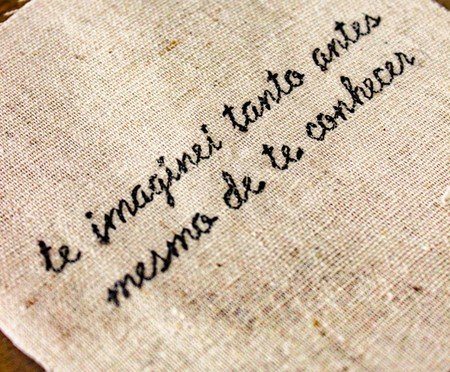 te imaginei tanto antes
mesmo de te conhecer